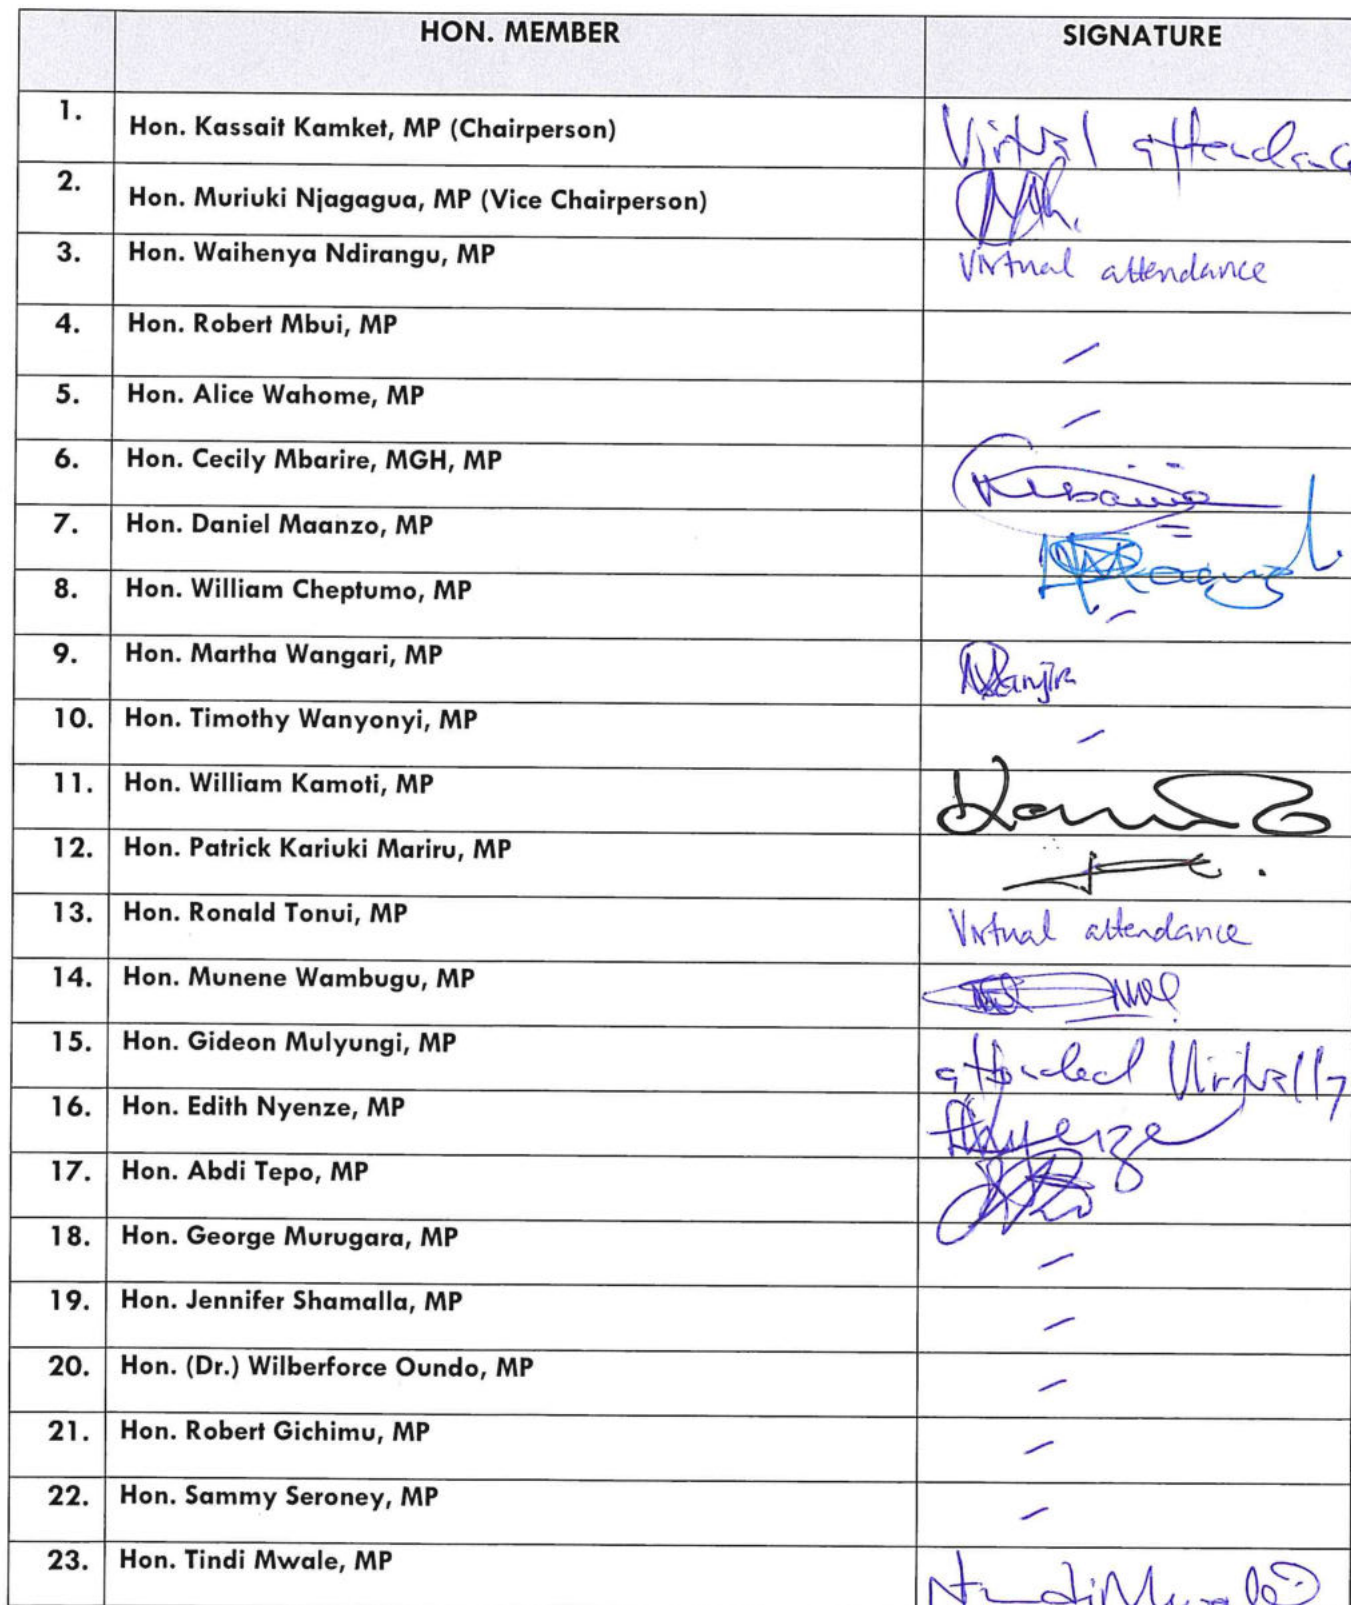 HON. MEMBER SIGNATURE
1. Hon. Kassait Kamket, MP (Chairperson) Virtual attendance
2. Hon. Muriuki Njagagua, MP (Vice Chairperson)
3. Hon. Waihenya Ndirangu, MP Virtual attendance
4. Hon. Robert Mbui, MP –
5. Hon. Alice Wahome, MP –
6. Hon. Cecily Mbarire, MGH, MP
7. Hon. Daniel Maanzo, MP
8. Hon. William Cheptumo, MP –
9. Hon. Martha Wangari, MP
10. Hon. Timothy Wanyonyi, MP –
11. Hon. William Kamoti, MP
12. Hon. Patrick Kariuki Mariru, MP
13. Hon. Ronald Tonui, MP Virtual attendance
14. Hon. Munene Wambugu, MP
15. Hon. Gideon Mulyungi, MP attended Virtually
16. Hon. Edith Nyenze, MP
17. Hon. Abdi Tepo, MP
18. Hon. George Murugara, MP –
19. Hon. Jennifer Shamalla, MP –
20. Hon. (Dr.) Wilberforce Oundo, MP –
21. Hon. Robert Gichimu, MP –
22. Hon. Sammy Seroney, MP –
23. Hon. Tindi Mwale, MP